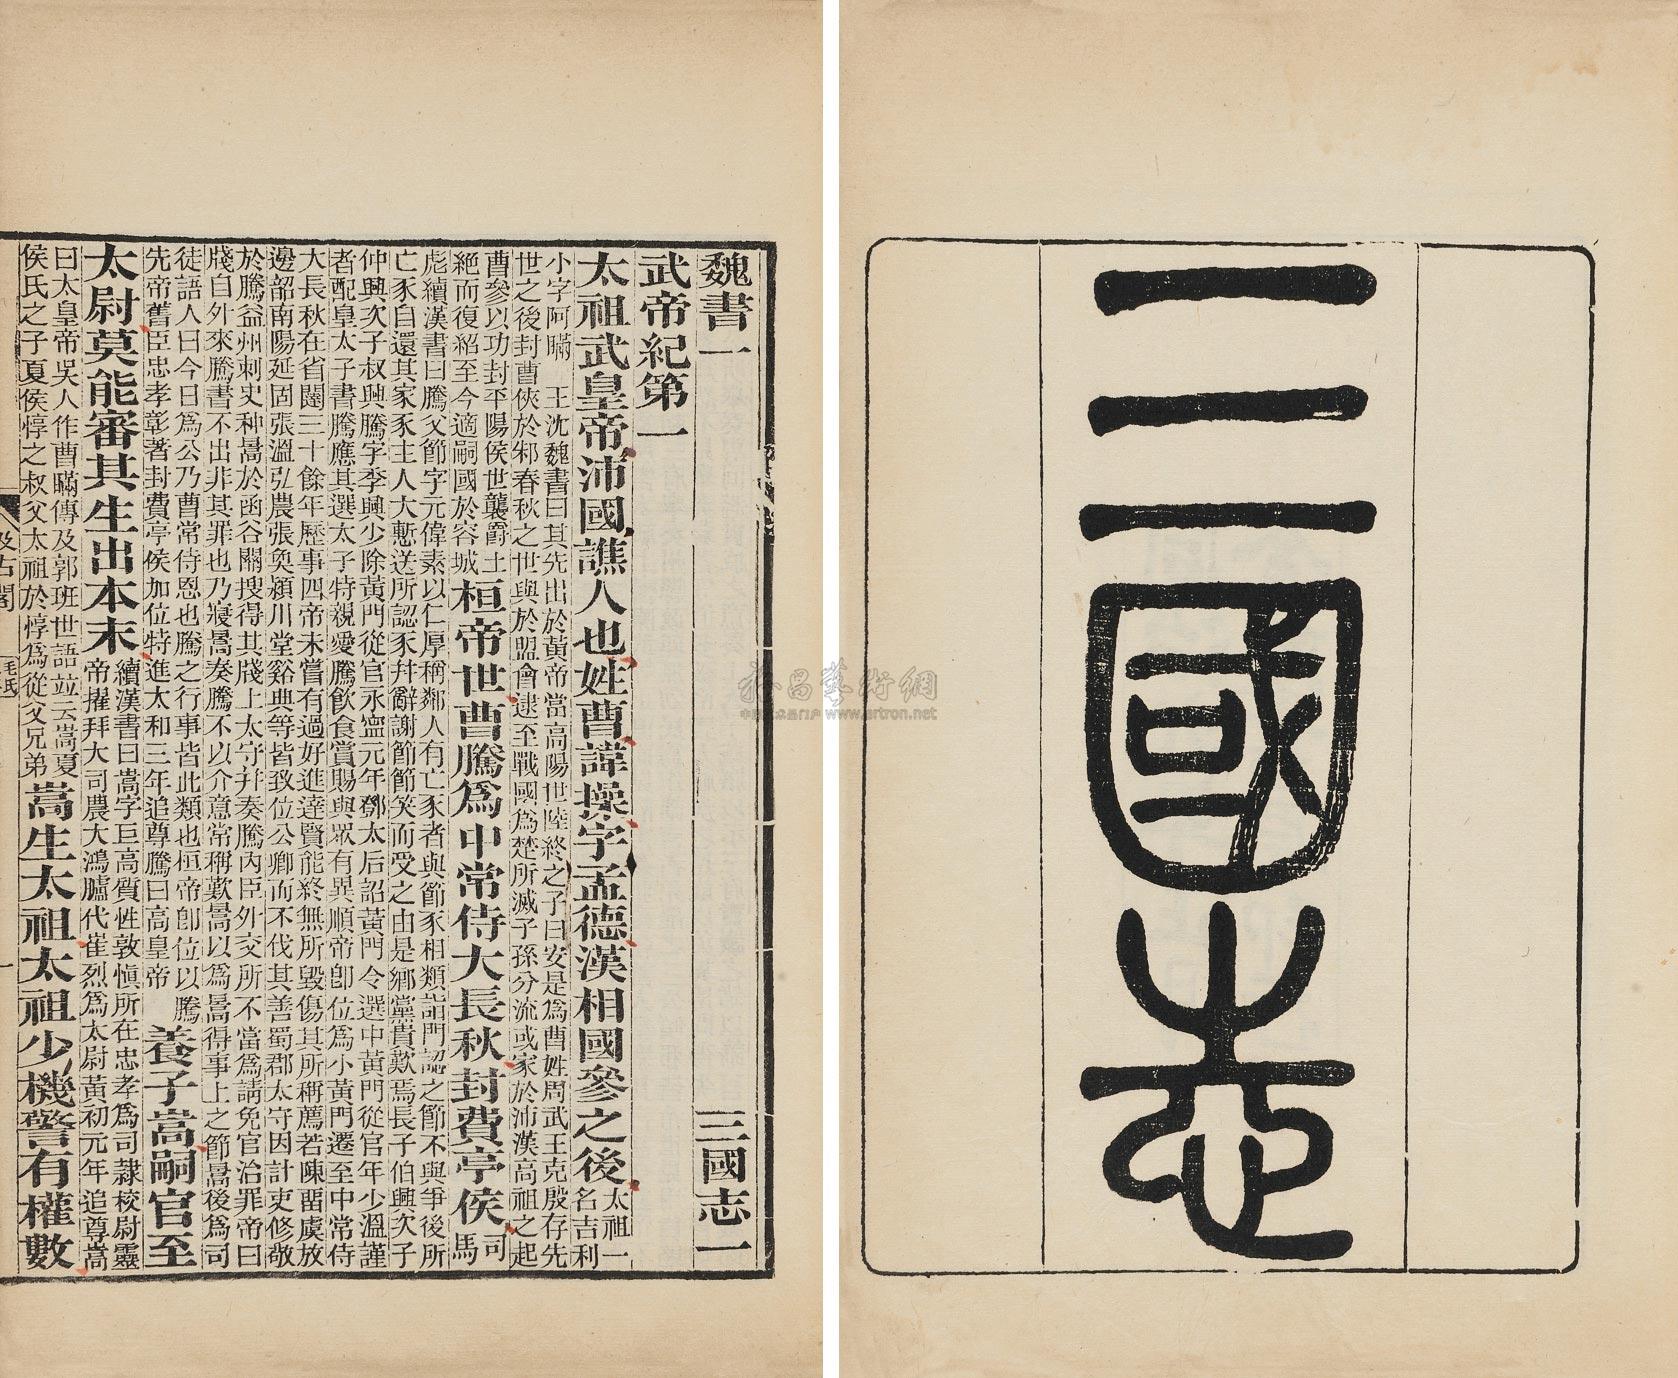 三國志
魏書一 三國志一
武帝紀第一
太祖武皇帝沛國譙人也姓曹諱操字孟德漢相國參之後
太祖一
名吉利
小字阿瞞 王沈魏書曰其先出於黃帝當高陽世陸終之子曰安是爲曹姓周武王克殷存先
世之後封曹俠於邾春秋之世與於盟會逮至戰國爲楚所滅子孫分流或家於沛漢高祖之起
曹參以功封平陽侯世襲爵土
絕而復紹至今適嗣國於容城
桓帝世曹騰爲中常侍大長秋封費亭侯
司
馬
彪續漢書曰騰父節字元偉素以仁厚稱鄰人有亡豕者與節豕相類詣門認之節不與爭後所
亡豕自還其家豕主人大慙送所認豕幷辭謝節節笑而受之由是鄉黨貴歎焉長子伯興次子
仲興次子叔興騰字季興少除黃門從官永寧元年鄧太后詔黃門令選中黃門從官年少溫謹
者配皇太子書騰應其選太子特親愛騰飲食賞賜與眾有異順帝卽位爲小黃門遷至中常侍
大長秋在省闥三十餘年歷事四帝未嘗有過好進達賢能終無所毀傷其所稱薦若陳留虞放
邊韶南陽延固張溫弘農張奐潁川堂谿典等皆致位公卿而不伐其善蜀郡太守因計吏修敬
於騰益州刺史种暠於函谷關搜得其牋上太守幷奏騰內臣外交所不當爲請免官治罪帝曰
牋自外來騰書不出非其罪也乃寢暠奏騰不以介意常稱歎暠以爲暠得事上之節暠後爲司
徒語人曰今日爲公乃曹常侍恩也騰之行事皆此類也桓帝卽位以騰
先帝舊臣忠孝彰著封費亭侯加位特進太和三年追尊騰曰高皇帝
養子嵩嗣官至
太尉莫能審其生出本末
續漢書曰嵩字巨高質性敦慎所在忠孝爲司隸校尉靈
帝擢拜大司農大鴻臚代崔烈爲太尉黃初元年追尊嵩
曰太皇帝吳人作曹瞞傳及郭班世語並云嵩夏
侯氏之子夏侯惇之叔父太祖於惇爲從父兄弟
嵩生太祖太祖少機警有權數
汲古閣 毛氏
一
雅昌藝術網
www.artron.net